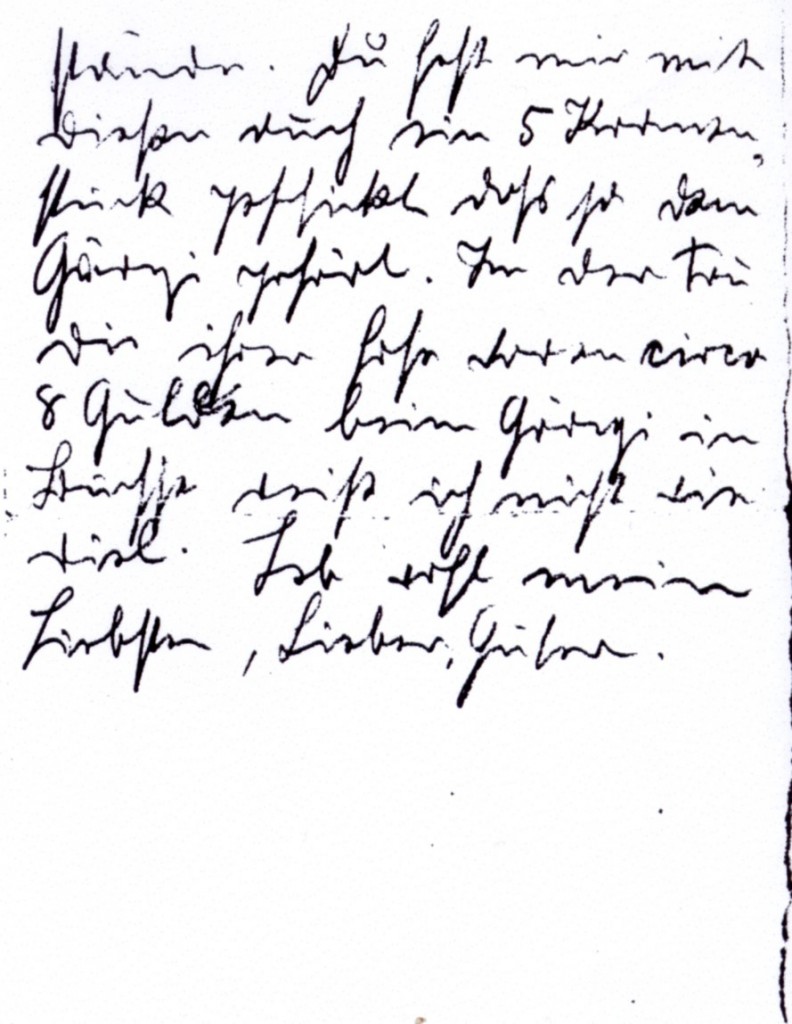 stände. Du hast mir mit
diesen auch ein 5 Kronen,
stück geschickt das ja dem
Györgyi gehört. In der Tru
die ihrer Hose waren circa
8 Gulden beim Györgyi in
weiß ich nicht wie
viel. Leb wohl mein
Liebster, Lieber, Guter.